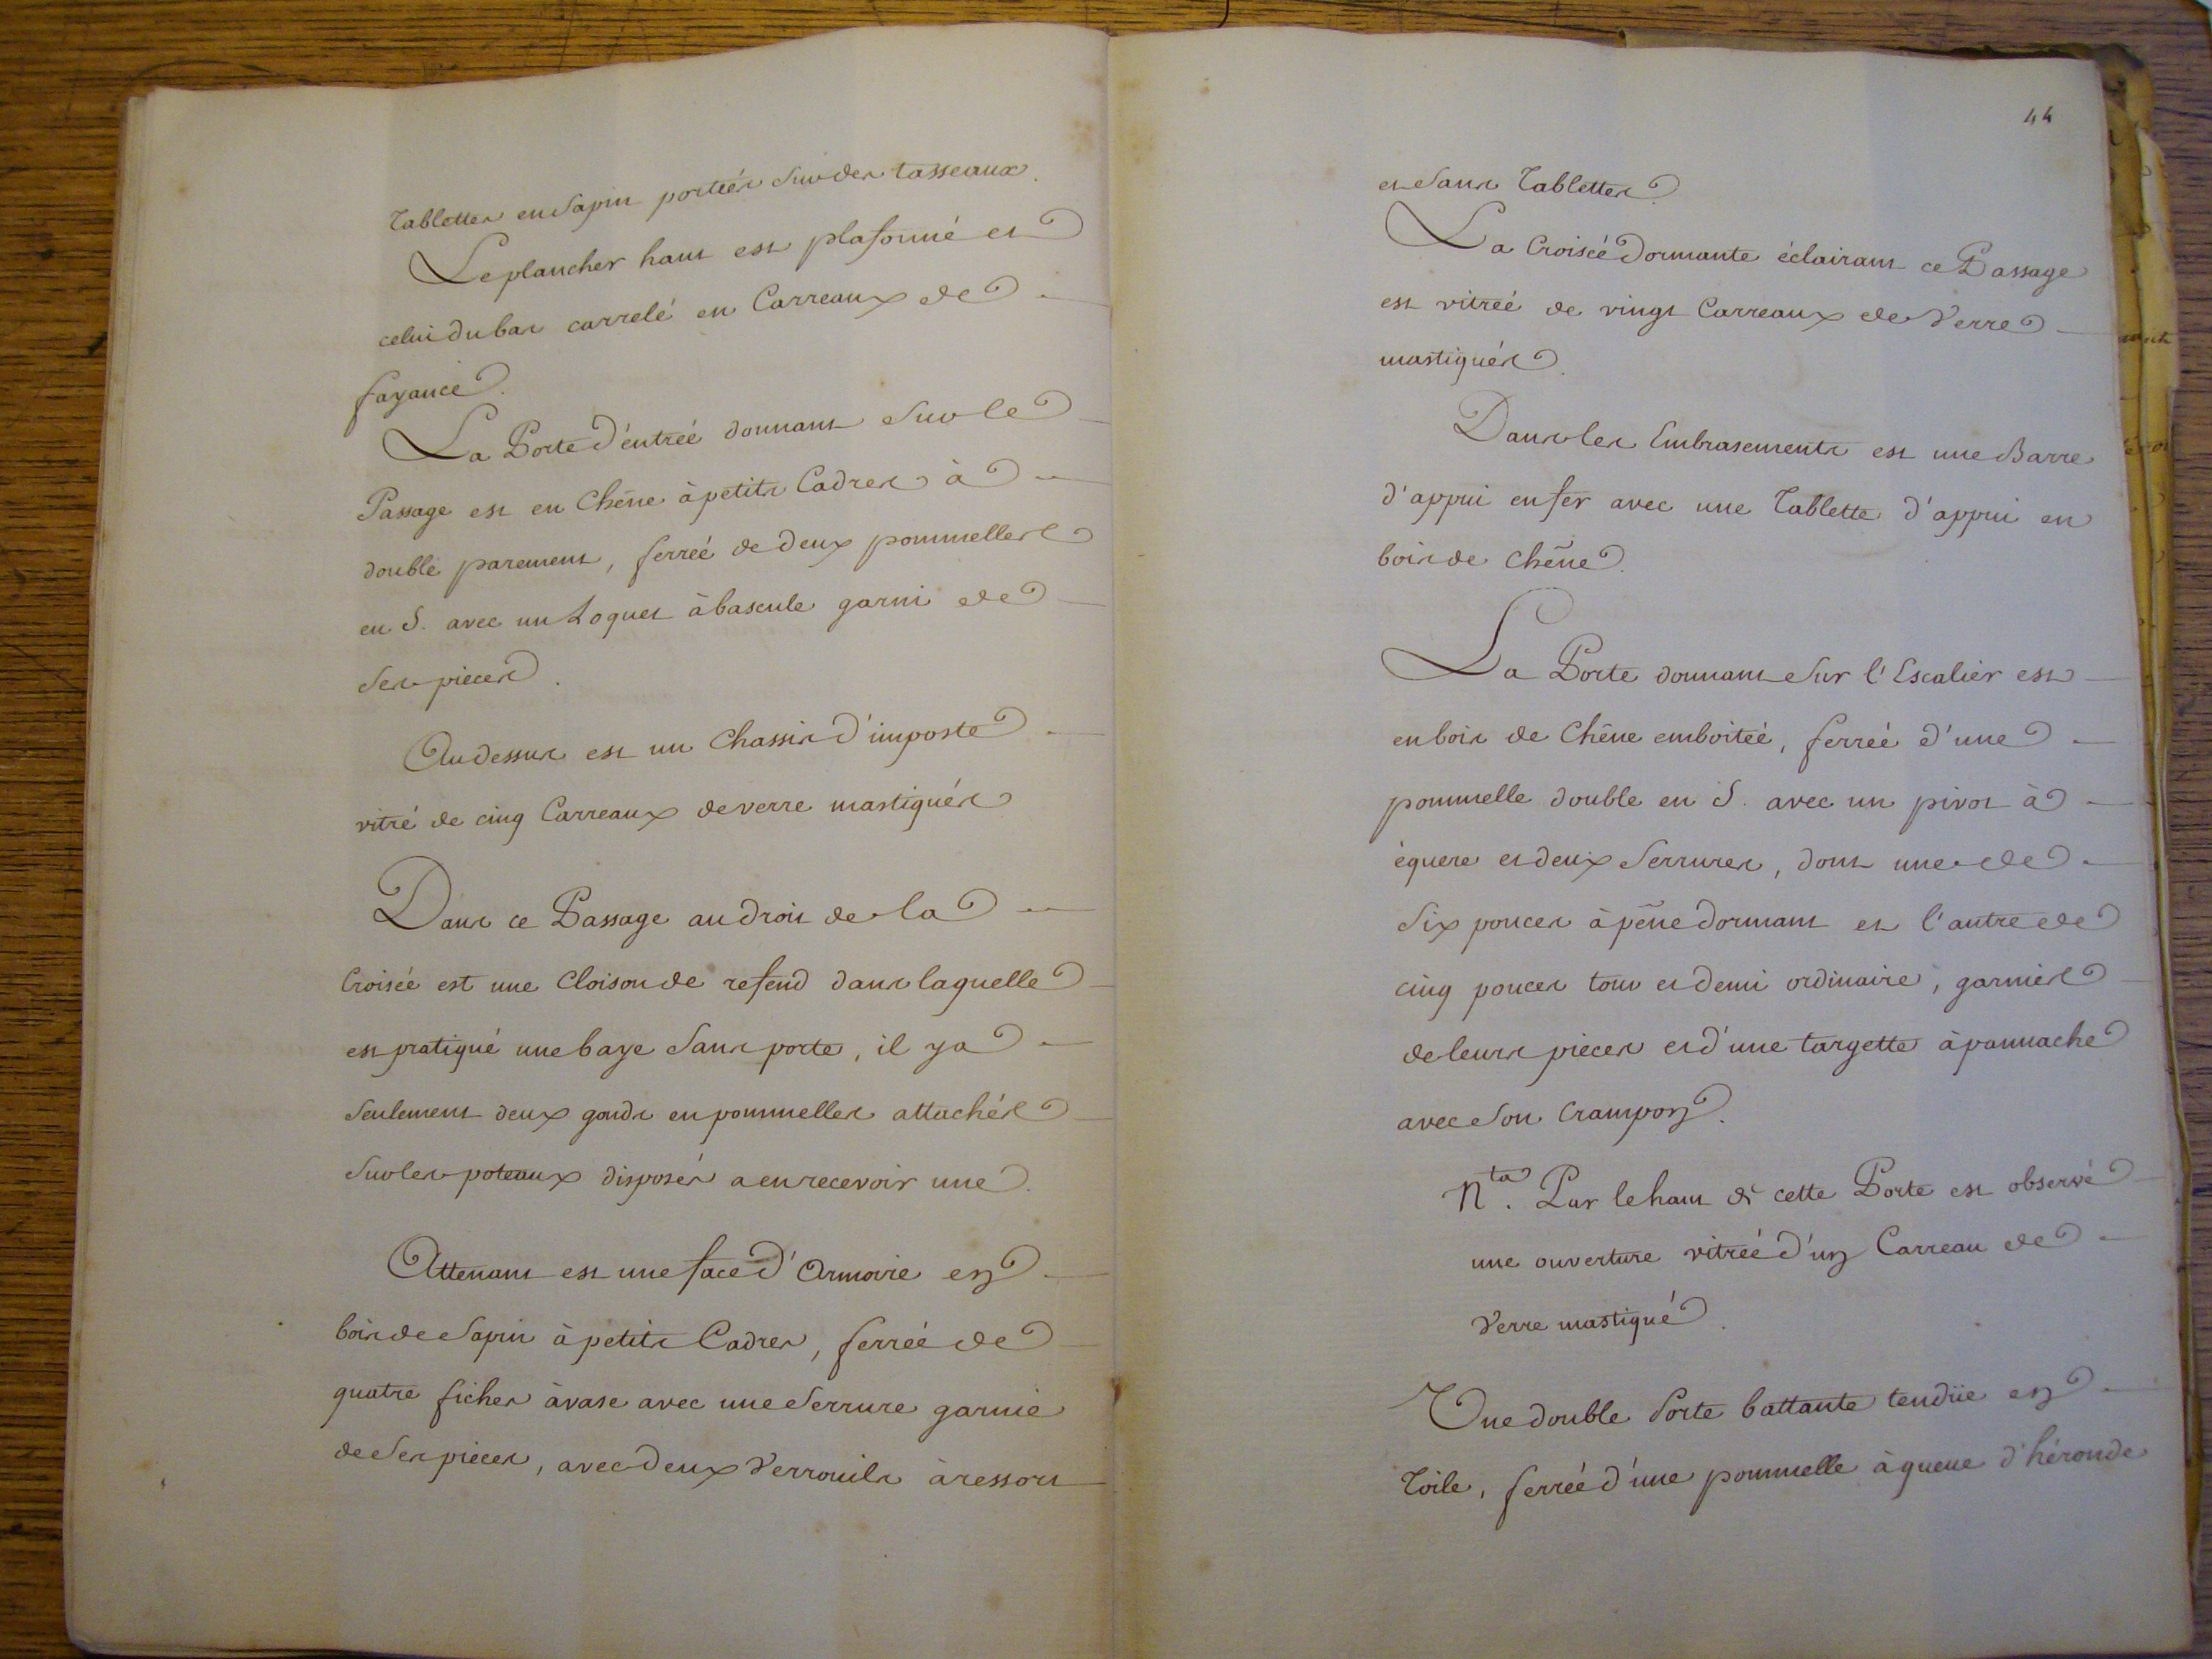 Tablettes en Sapin portées Sur des tasseaux.
Le plancher haut est plafonné et
celui du bas carrelé en Carreaux de
fayance.
La Porte d'entrée donnant Sur le
Passage est en Chêne à petits Cadres à
double parement, ferreé de deux pommelles
en S. avec un Loquet à bascule garni de
Ses pieces.
Au dessus est un Chassis d'imposte
vitré de cinq Carreaux de verre mastiqués
Dans ce Passage au droit de la
Croisée est une Cloison de refend dans laquelle
est pratiqué une baye Sans porte, il y a
Seulement deux gonds en pommelles attachés
Sur les poteaux disposés a en recevoir une.
Attenant est une face d'Armoire en
bois de Sapin à petits Cadres, ferreé de
quatre fiches à vase avec une Serrure garnie
de Ses pieces, avec deux Verrouils à ressort
44
et Sans Tablettes.
La Croisée Dormante éclairant ce Passage
est vitreé de vingt Carreaux de Verre
mastiqués.
Dans les Embrasements est une Barre
d'appui en fer avec une Tablette d'appui en
bois de Chêne.
La Porte donnant Sur l'Escalier est
en bois de Chêne emboiteé, ferreé d'une
pommelle double en S. avec un pivot à
équere et deux Serrures, dont une de
Six pouces à pêne dormant et l'autre de
cinq pouces tour et demi ordinaire, garnies
de leurs pieces et d'une targette à pannache
avec Son Crampon.
Nta. Par le haut de cette Porte est observé
une ouverture vitreé d'un Carreau de
Verre mastiqué.
Une double Porte battante tendüe en
Toile, ferreé d'une pommelle à queue d'héronde